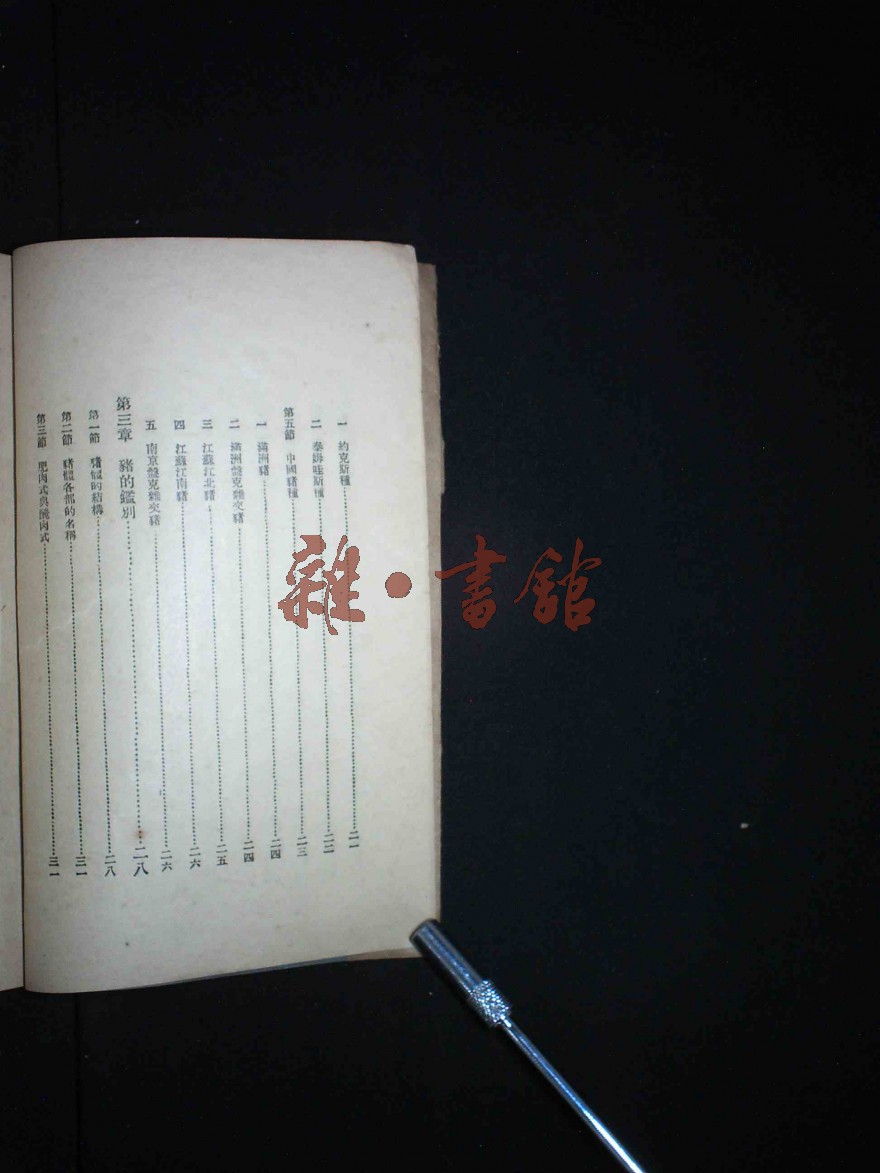 一 約克斯種……二一
二 泰姆哇斯種……二二
第五節 中國豬種……二三
一 滿洲豬……二四
二 滿洲盤克雜交豬……二四
三 江蘇江北豬……二五
四 江蘇江南豬……二六
五 南京盤克雜交豬……二六
第三章 豬的鑑別……二八
第一節 豬體的結構……二八
第二節 豬體各部的名稱……三一
第三節 肥肉式與醃肉式……三一
雜·書館